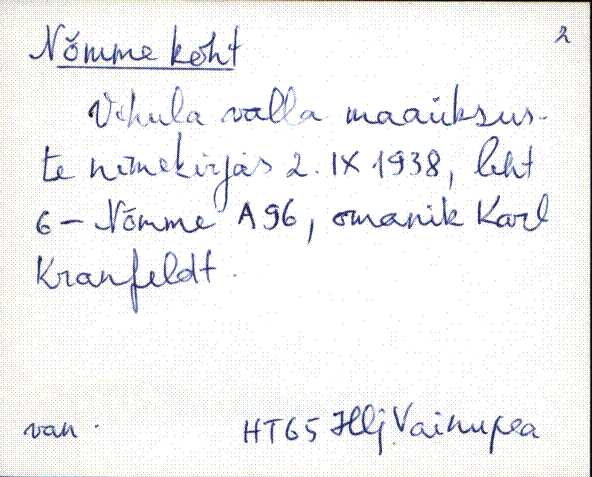 2
Nõmme koht
Vihula valla maaüksus-
te nimekirjas 2. IX 1938, leht
6 – Nõmme A96, omanik Karl
Kranfeldt.
van.
HT65 Hlj. Vainupea